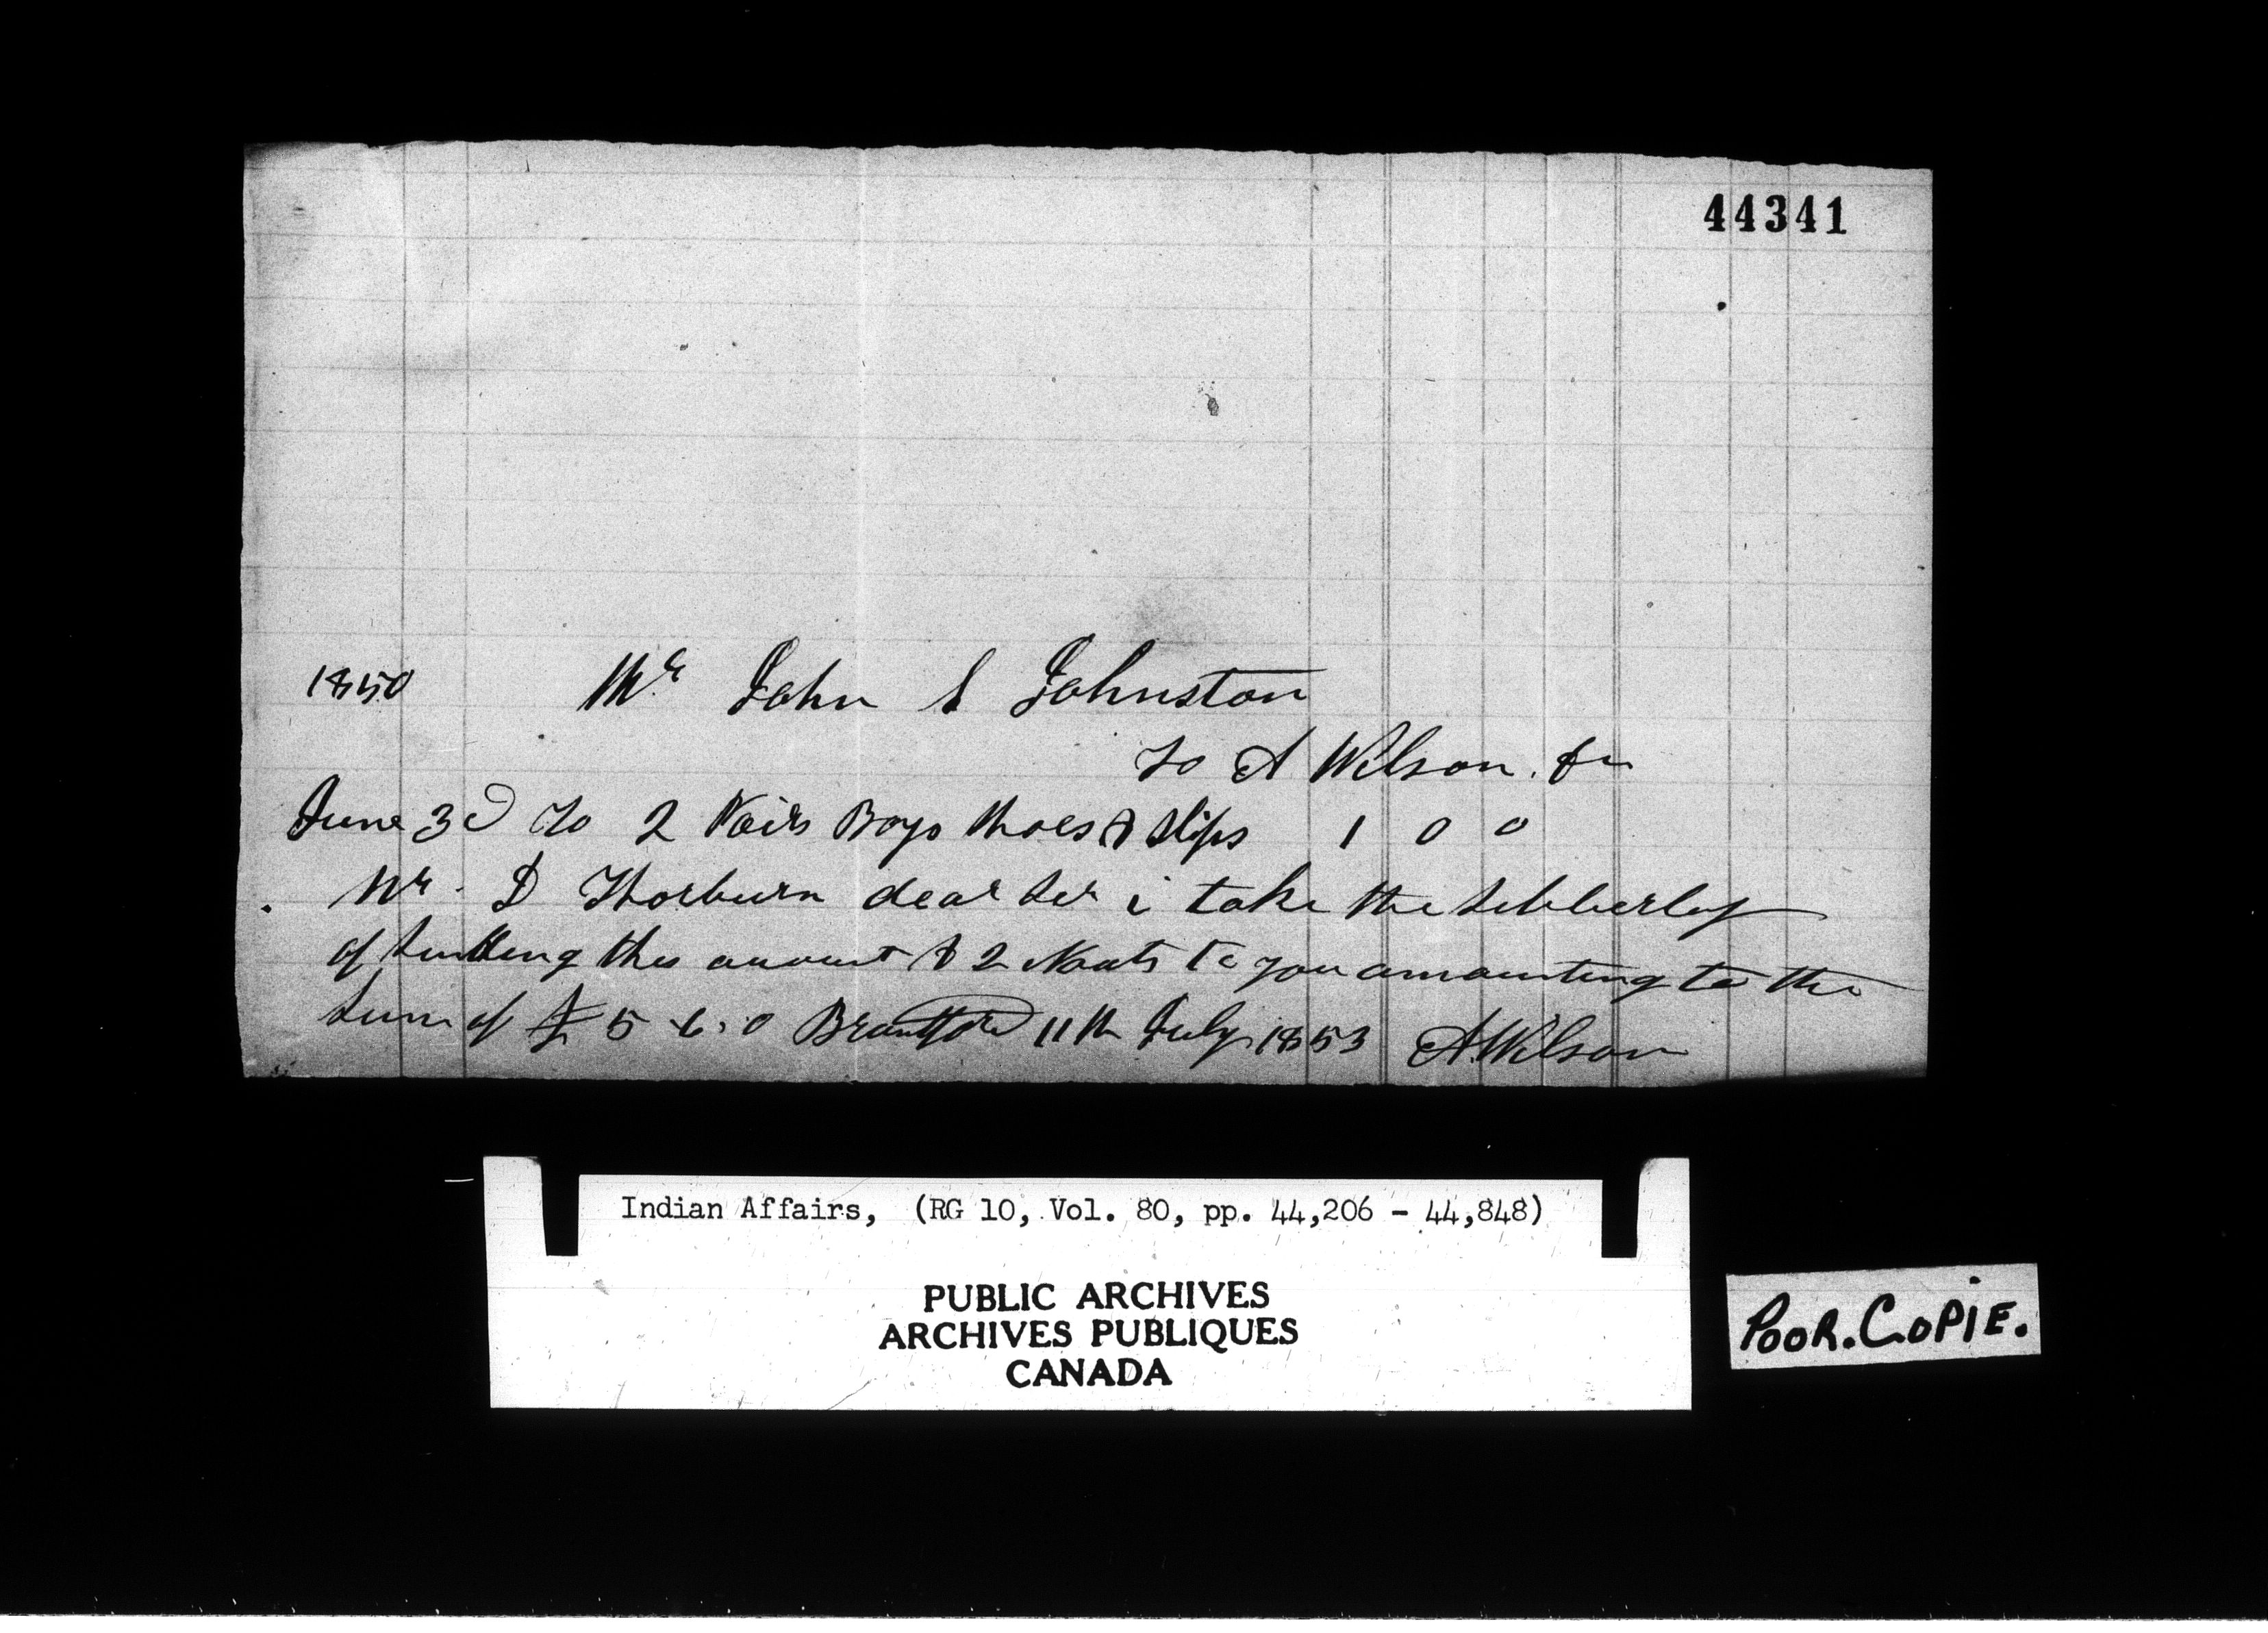 44341
1850 Mr John S Johnston
To A Wilson. Dr
June 3d To 2 Pairs Boys Shoes & Slips 1 0 0
Mr. D Thorburn dear Ser i take the libberley
of sending this amount & 2 Noats to you amounting to the
sum of £ 5 - 6 , 0 Brantford 11th July 1853 A. Wilson
Indian Affairs, (RG 10, Vol. 80, pp. 44,206 - 44,848)
PUBLIC ARCHIVES
ARCHIVES PUBLIQUES
CANADA
POOR.COPIE.